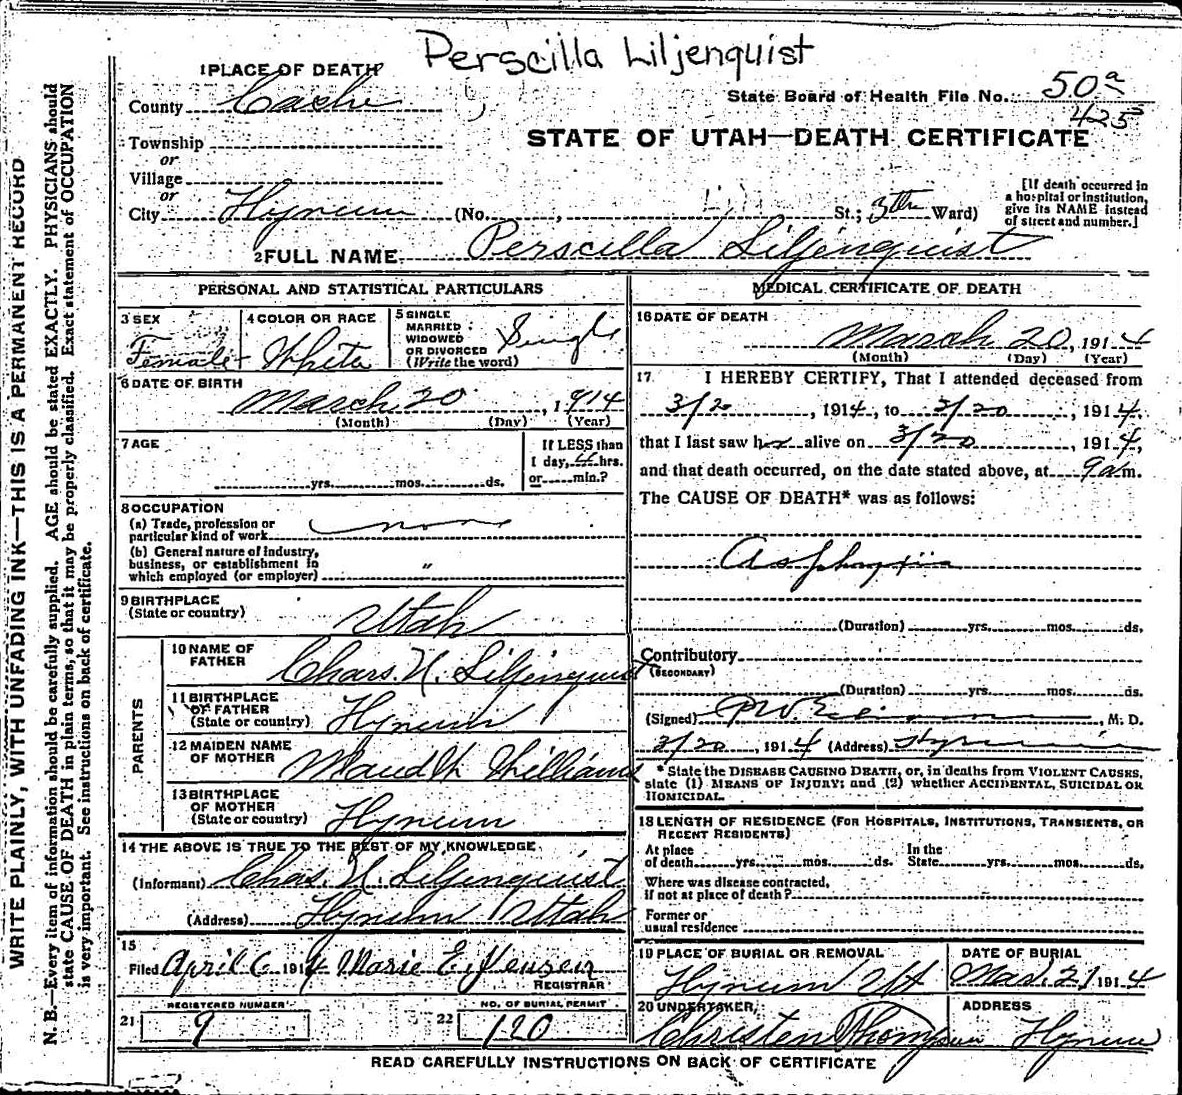 Perscilla Liljenquist
1 PLACE OF DEATH
County Cache
State Board of Health File No. 50a
425
Township
or
Village
or
City Hyrum (No. , St.; 3th Ward)
STATE OF UTAH—DEATH CERTIFICATE
[If death occurred in
a hospital or institution,
give its NAME instead
of street and number.]
2 FULL NAME Perscilla Liljenquist
PERSONAL AND STATISTICAL PARTICULARS
3 SEX
Female
4 COLOR OR RACE
White
5 SINGLE
MARRIED
WIDOWED
OR DIVORCED
(Write the word)
Single
6 DATE OF BIRTH
March 20, 1914
(Month) (Day) (Year)
7 AGE
yrs. mos. ds.
If LESS than
1 day, hrs.
or min.?
8 OCCUPATION
(a) Trade, profession or
particular kind of work none
(b) General nature of industry,
business, or establishment in
which employed (or employer) "
9 BIRTHPLACE
(State or country) Utah
PARENTS
10 NAME OF
FATHER Chars. N. Liljenquist
11 BIRTHPLACE
OF FATHER
(State or country) Hyrum
12 MAIDEN NAME
OF MOTHER Maud Williams
13 BIRTHPLACE
OF MOTHER
(State or country) Hyrum
14 THE ABOVE IS TRUE TO THE BEST OF MY KNOWLEDGE
(Informant) Chas. N. Liljenquist
(Address) Hyrum Utah
15
Filed April 6 1914 Marie E. Jensen
REGISTRAR
REGISTERED NUMBER
21 9
NO. OF BURIAL PERMIT
22 120
MEDICAL CERTIFICATE OF DEATH
16 DATE OF DEATH
March 20, 1914
(Month) (Day) (Year)
17. I HEREBY CERTIFY, That I attended deceased from
3/20, 1914, to 3/20, 1914,
that I last saw her alive on 3/20, 1914,
and that death occurred, on the date stated above, at 9 am.
The CAUSE OF DEATH* was as follows:
Asphyxia
(Duration) yrs. mos. ds.
Contributory
(SECONDARY)
(Duration) yrs. mos. ds.
(Signed) , M. D.
3/20, 1914 (Address) Hyrum
* State the DISEASE CAUSING DEATH, or, in deaths from VIOLENT CAUSES,
state (1) MEANS OF INJURY; and (2) whether ACCIDENTAL, SUICIDAL OR
HOMICIDAL.
18 LENGTH OF RESIDENCE (FOR HOSPITALS, INSTITUTIONS, TRANSIENTS, OR
RECENT RESIDENTS)
At place
of death yrs. mos. ds.
In the
State yrs. mos. ds.
Where was disease contracted,
if not at place of death?
Former or
usual residence
19 PLACE OF BURIAL OR REMOVAL
Hyrum Ut
DATE OF BURIAL
Mar. 21 1914
20 UNDERTAKER
Christen Thompson
ADDRESS
Hyrum
READ CAREFULLY INSTRUCTIONS ON BACK OF CERTIFICATE
WRITE PLAINLY, WITH UNFADING INK—THIS IS A PERMANENT RECORD
N. B.—Every item of information should be carefully supplied. AGE should be stated EXACTLY. PHYSICIANS should
state CAUSE OF DEATH in plain terms, so that it may be properly classified. Exact statement of OCCUPATION
is very important. See instructions on back of certificate.